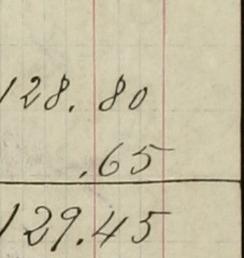 128. 80
.65
129.45